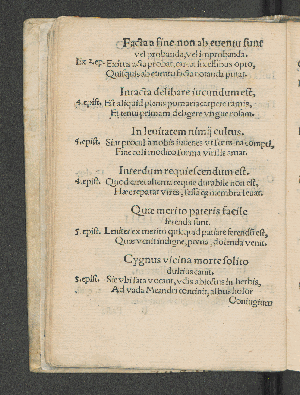 Facta a fine non ab euentu sunt
vel probanda, vel improbanda.
Ex 2. ep. Exitus acta probat, careat successibus opto,
Quisquis ab euentu facta notanda putat.
Intacta delibare iucundum est,
4. epist. Est aliquid plenis pomaria carpere ramis,
Et tenui primam deligere vngue rosam.
In leuitatem nimij cultus.
4. epist. Sint procul a nobis iuuenes vt fœmina compti,
Fine coli modico forma virilis amat.
Interdum requiescendum est.
4. epist. Quod caret alterna requie durabile non est,
Hæc reparat vires, fessaq; membra leuat.
Quæ merito pateris facile
ferenda sunt.
5. epist. Leniter ex merito quicquid patiare ferendū est,
Quæ venit indigne, pœna, dolenda venit.
Cygnus vicina morte solito
dulcius canit.
5. epist. Sic vbi fata vocant, vdis abiectus in herbis,
Ad vada Meandri concinit, albus holor
Coniugium